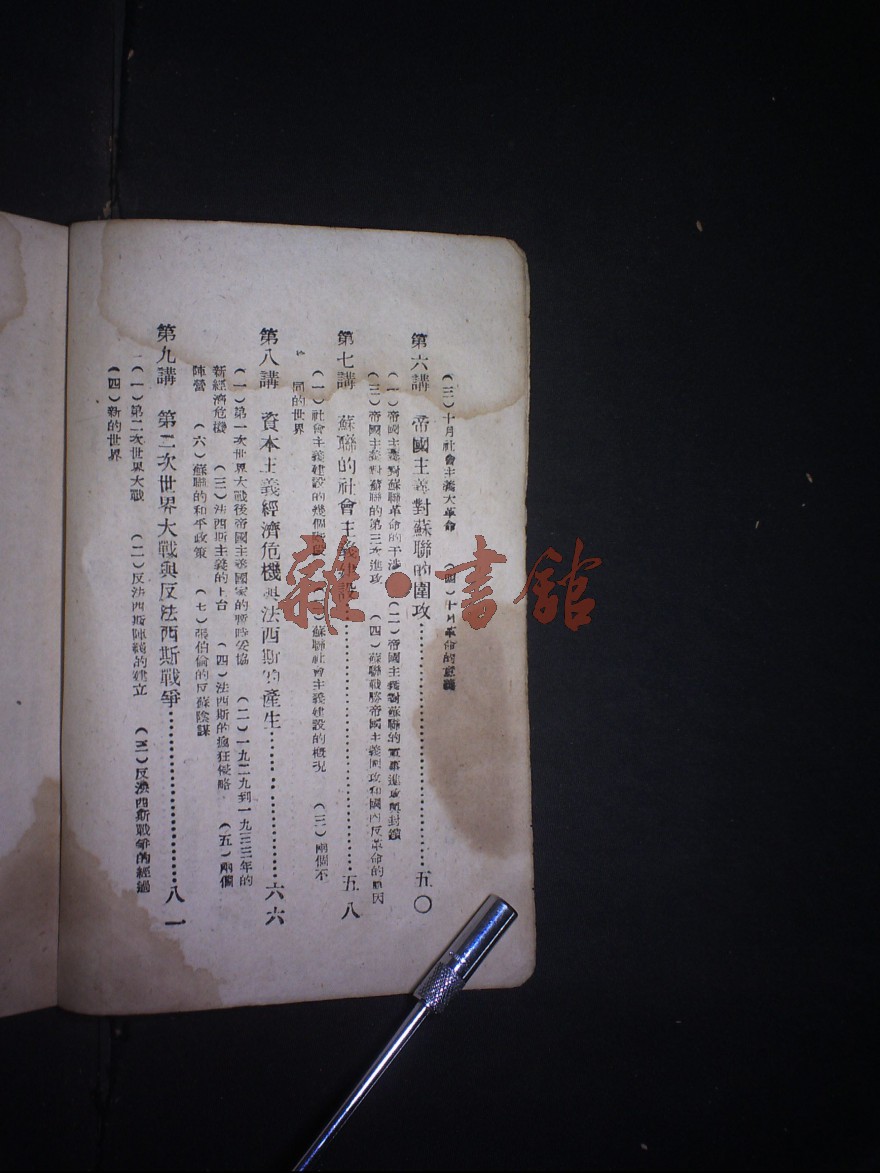 (三)十月社會主義大革命 (四)十月革命的意義
第六講 帝國主義對蘇聯的圍攻……五〇
(一)帝國主義對蘇聯革命的干涉 (二)帝國主義對蘇聯的軍事進攻與封鎖
(三)帝國主義對蘇聯的第三次進攻 (四)蘇聯戰勝帝國主義圍攻和國內反革命的原因
第七講 蘇聯的社會主義建設……五八
(一)社會主義建設的幾個 蘇聯社會主義建設的概况 (三)兩個不
同的世界
第八講 資本主義經濟危機與法西斯的產生……六六
(一)第一次世界大戰後帝國主義國家的暫時妥協 (二)一九二九到一九三三年的
新經濟危機 (三)法西斯主義的上台 (四)法西斯的瘋狂侵略 (五)兩個
陣營 (六)蘇聯的和平政策 (七)張伯倫的反蘇陰謀
第九講 第二次世界大戰與反法西斯戰爭……八一
(一)第二次世界大戰 (二)反法西斯陣綫的建立 (三)反法西斯戰爭的經過
(四)新的世界
雜·書館